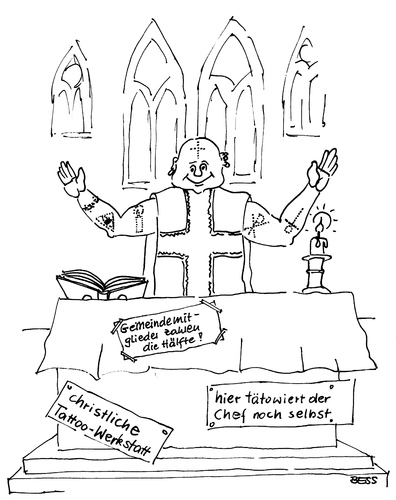 Gemeindemit-
glieder zahlen
die Hälfte!
christliche
Tattoo-Werkstatt
hier tätowiert der
Chef noch selbst
BESS